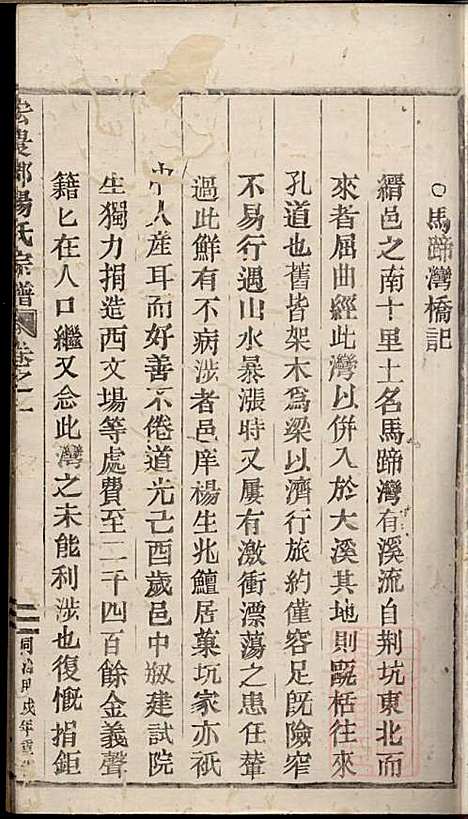 ○馬蹄灣橋記
縉邑之南十里土名馬蹄灣有溪流自荆坑東北而
來者屈曲經此灣以併入於大溪其地則甌栝往來
孔道也舊皆架木爲梁以濟行旅約僅容足旣險窄
不易行遇山水暴漲時又屢有激衝漂蕩之患任輦
過此鮮有不病涉者邑庠楊生兆鱣居菓坑家亦祇
中人産耳而好善不倦道光己酉歲邑中剙建試院
生獨力捐造西文場等處費至二千四百餘金義聲
籍匕在人口繼又念此灣之未能利涉也復慨捐鉅
宏農郡楊氏宗譜 卷之一
同治甲戌年重